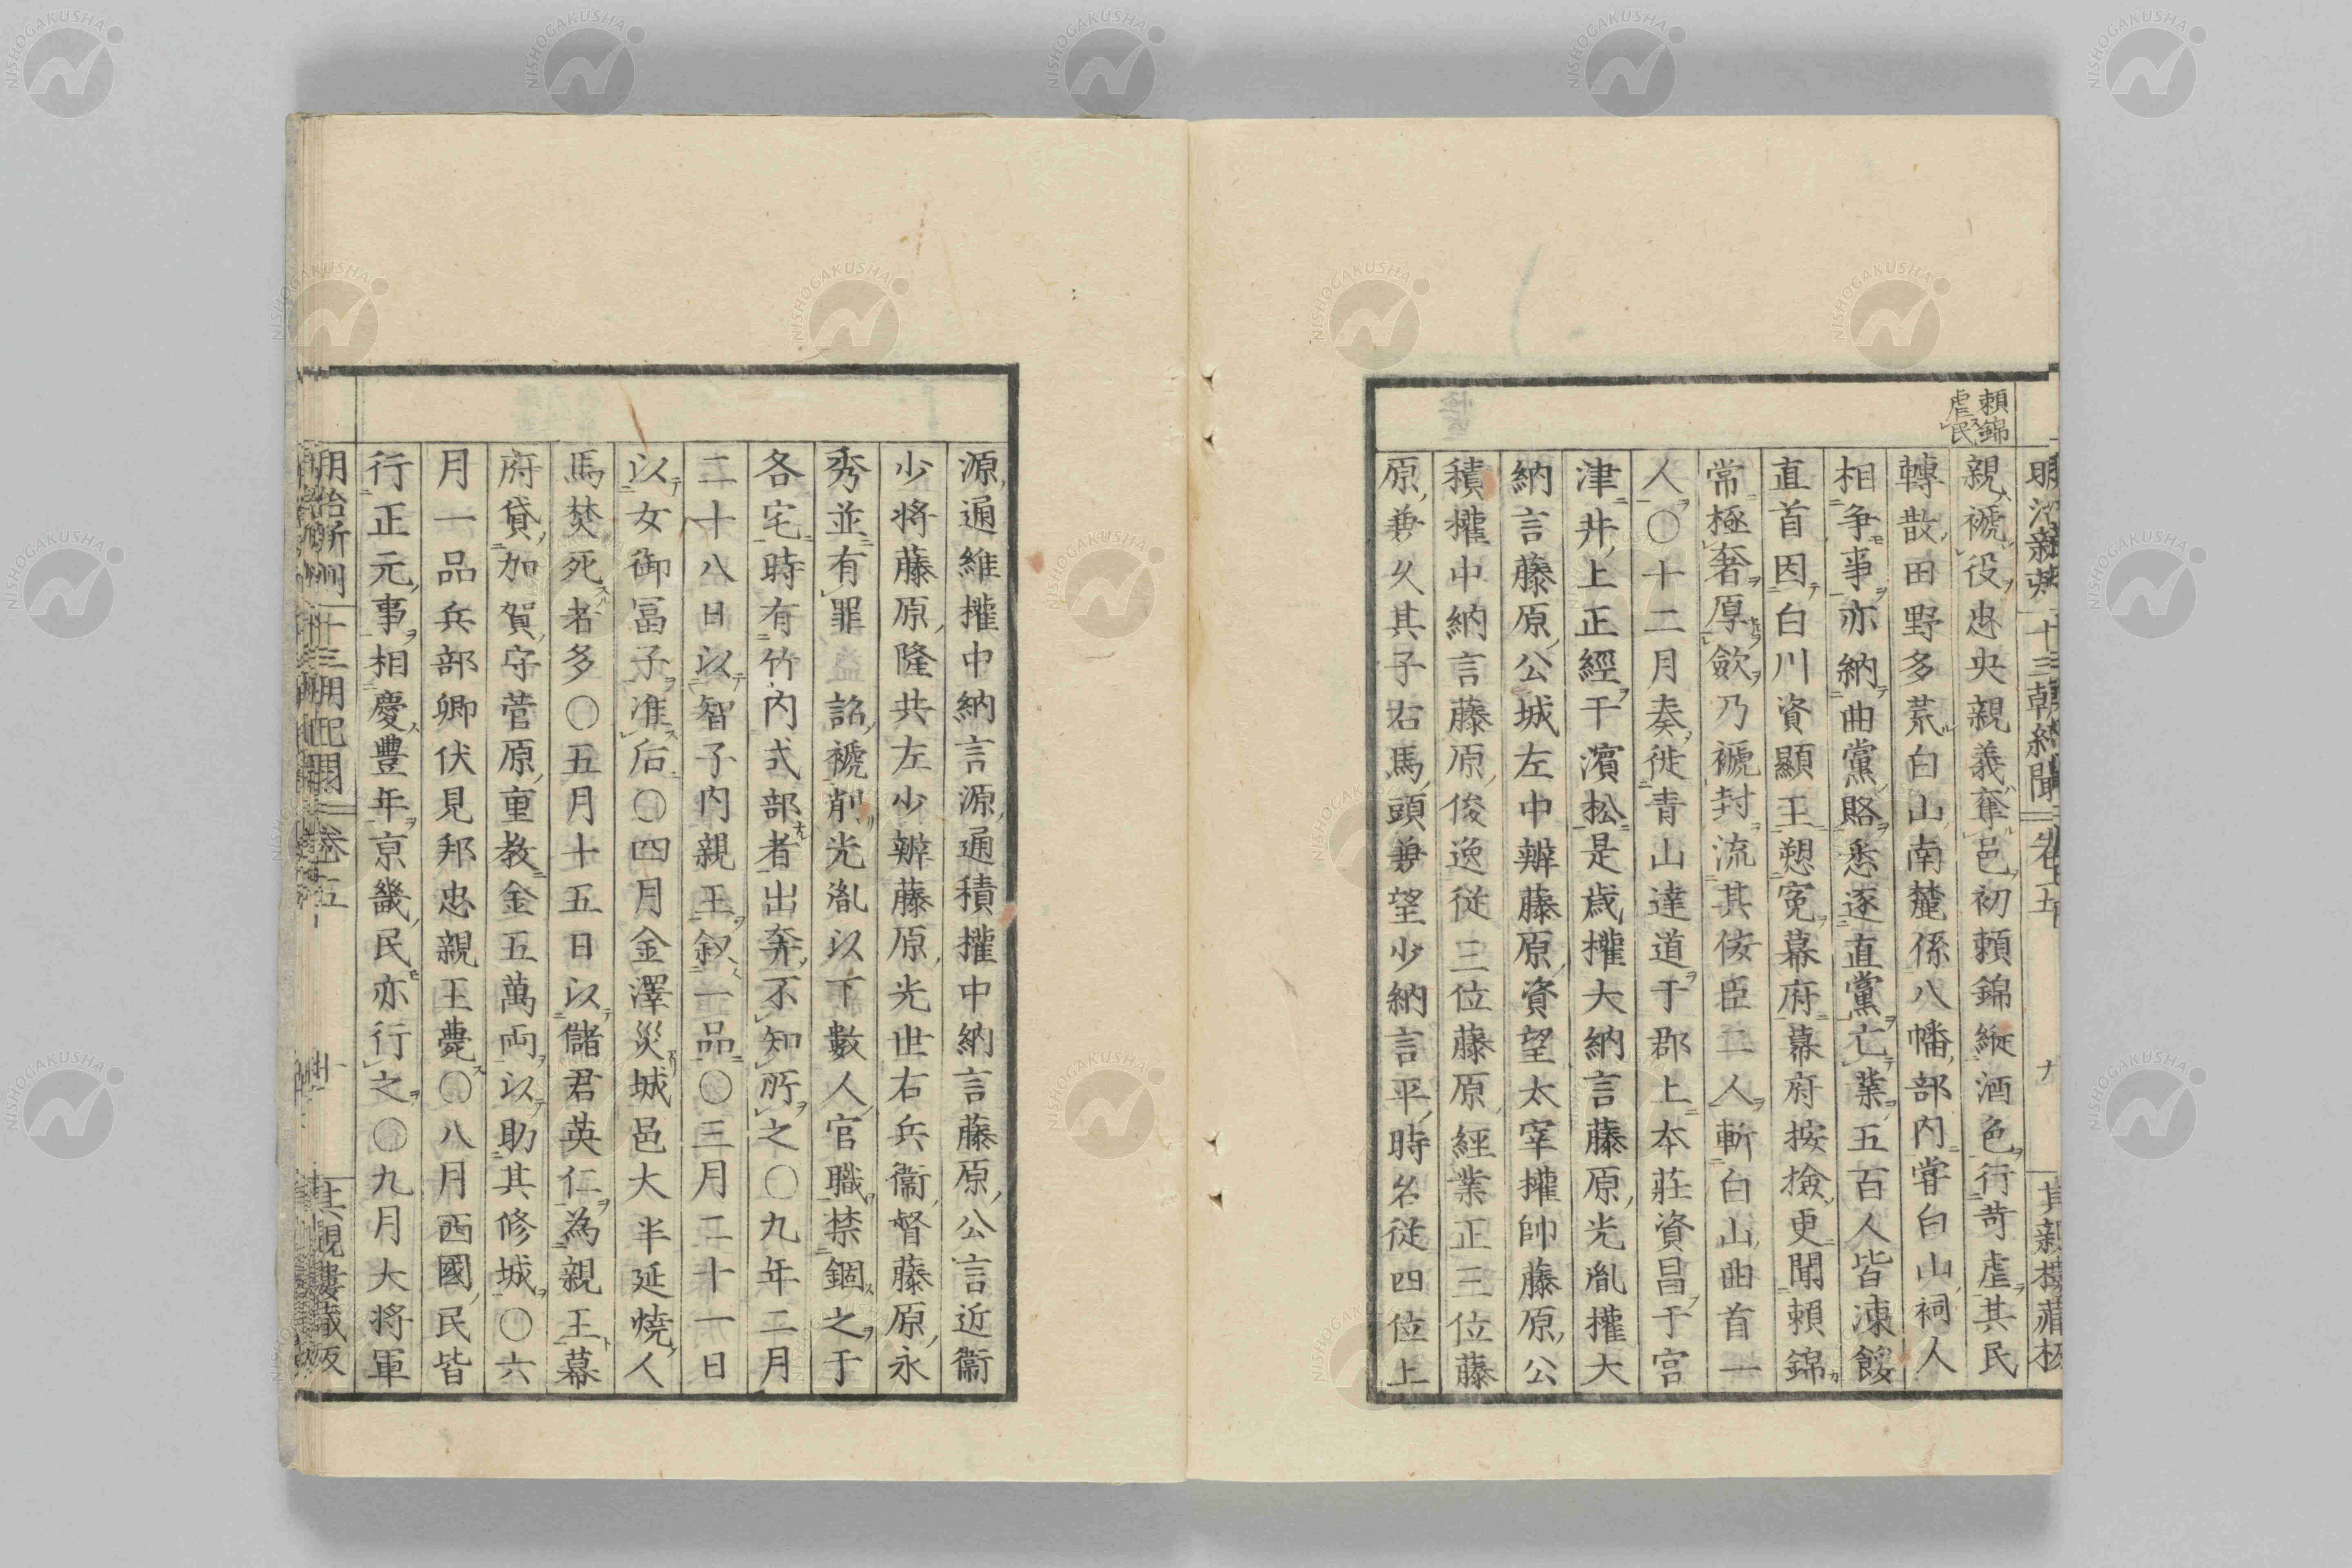 頼錦
虐民
明治新刻 十三朝紀聞 卷五 其親樓蔵板
親褫役忠央親義奪邑初頼錦縦酒色行苛虐其民
轉散田野多荒白山南麓係八幡部内嘗白山祠人
相争事亦納曲黨賂悉逐直黨亡業五百人皆凍餒
直首因白川資顯王愬寃幕府幕府按撿更聞頼錦
常極奢厚歛乃褫封流其侫臣二人斬白山曲首一
人〇十二月奏徙青山達道于郡上本莊資昌于宮
津井上正經于濱松是歳權大納言藤原光胤權大
納言藤原公城左中辨藤原資望太宰權帥藤原公
積權中納言藤原俊逸従三位藤原經業正三位藤
原兼久其子右馬頭兼望少納言平時名従四位上
源通維權中納言源通積權中納言藤原公言近衞
少将藤原隆共左少辨藤原光世右兵衞督藤原永
秀並有罪詔褫削光胤以下數人官職禁錮之于
各宅時有竹内式部者出奔不知所之〇九年二月
二十八日以智子内親王叙一品〇三月二十一日
以女御冨子准后〇四月金澤災城邑大半延燒人
馬焚死者多〇五月十五日以儲君英仁為親王幕
府貸加賀守菅原重教金五萬両以助其修城〇六
月一品兵部卿伏見邦忠親王薨〇八月西國民皆
行正元事相慶豊年京畿民亦行之〇九月大将軍
明治新刻 十三朝紀聞 卷五 其親樓蔵板